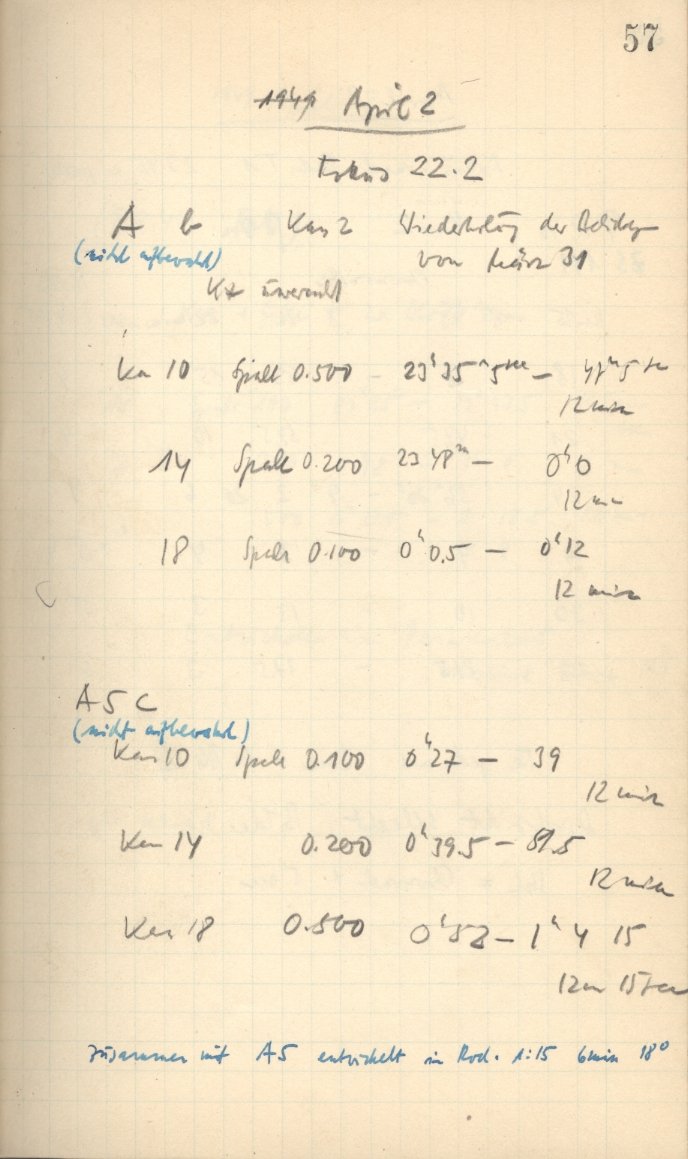 57
1949 April 2
Fokus 22.2
A b Kas 2 Wiederholung der
(nicht aufbewahrt) von März 31
Ka 10 Spalt 0.500 – 23h 35m 5sec – 47m 5sec
12 min
14 Spalt 0.200 23 48m – 0h 0
12 min
18 Spalt 0.100 0h 0.5 – 0h 12
12 min
A 5 C
(nicht aufbewahrt)
Kas 10 Spalt 0.100 0h 27 – 39
12 min
Kas 14 0.200 0h 39.5 – 51.5
12 min
Kas 18 0.500 0h 52 – 1h 4 15
12m 15sec
zusammen mit A5 entwickelt in Rod. 1:15 6min 18°